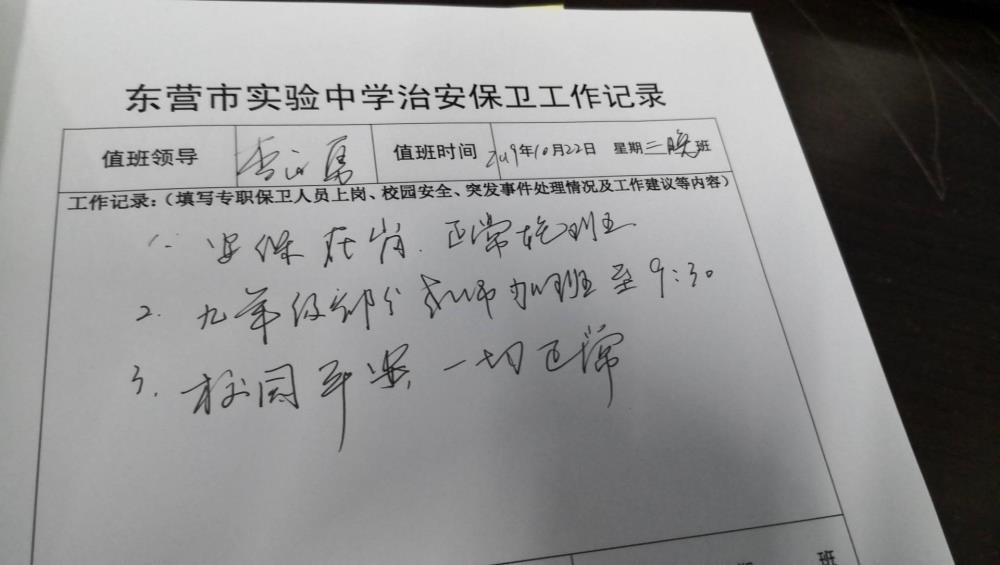 东营市实验中学治安保卫工作记录
值班领导 值班时间 2019年10月22日 星期二晚班
工作记录：（填写专职保卫人员上岗、校园安全、突发事件处理情况及工作建议等内容）
1. 安保在岗. 正常值班
2. 九年级部分教师加班至9:30
3. 校园平安 一切正常
班